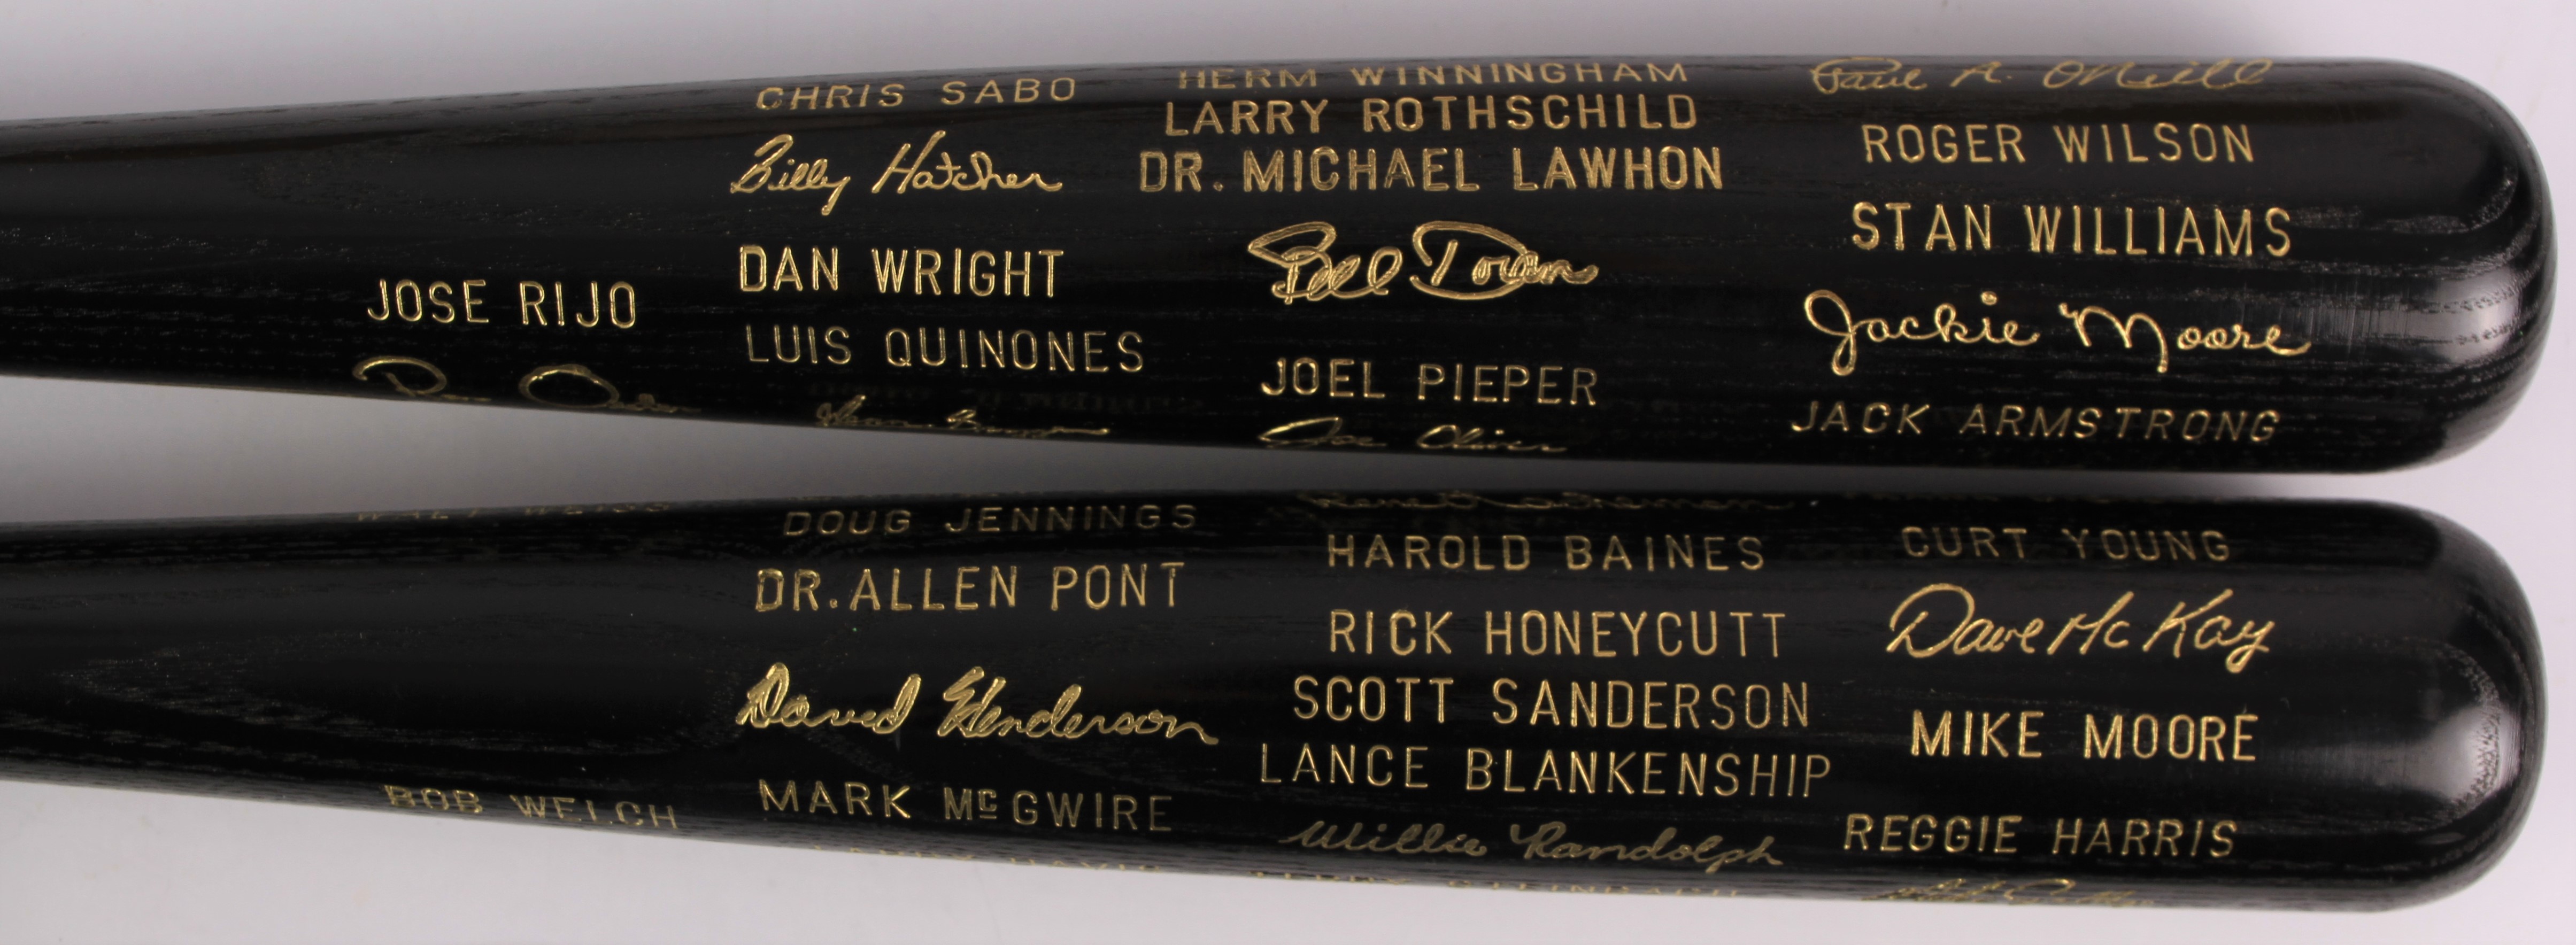 JOSE RIJO
CHRIS SABO
Billy Hatcher
DAN WRIGHT
LUIS QUINONES
HERM WINNINGHAM
LARRY ROTHSCHILD
DR. MICHAEL LAWHON
Bill Doran
JOEL PIEPER
Joe Oliver
Paul A. O'Neill
ROGER WILSON
STAN WILLIAMS
Jackie Moore
JACK ARMSTRONG
WALT WEISS
BOB WELCH
DOUG JENNINGS
DR. ALLEN PONT
David Henderson
MARK McGWIRE
Rene Lachemann
HAROLD BAINES
RICK HONEYCUTT
SCOTT SANDERSON
LANCE BLANKENSHIP
Willie Randolph
TERRY STEINBACH
CURT YOUNG
Dave McKay
MIKE MOORE
REGGIE HARRIS